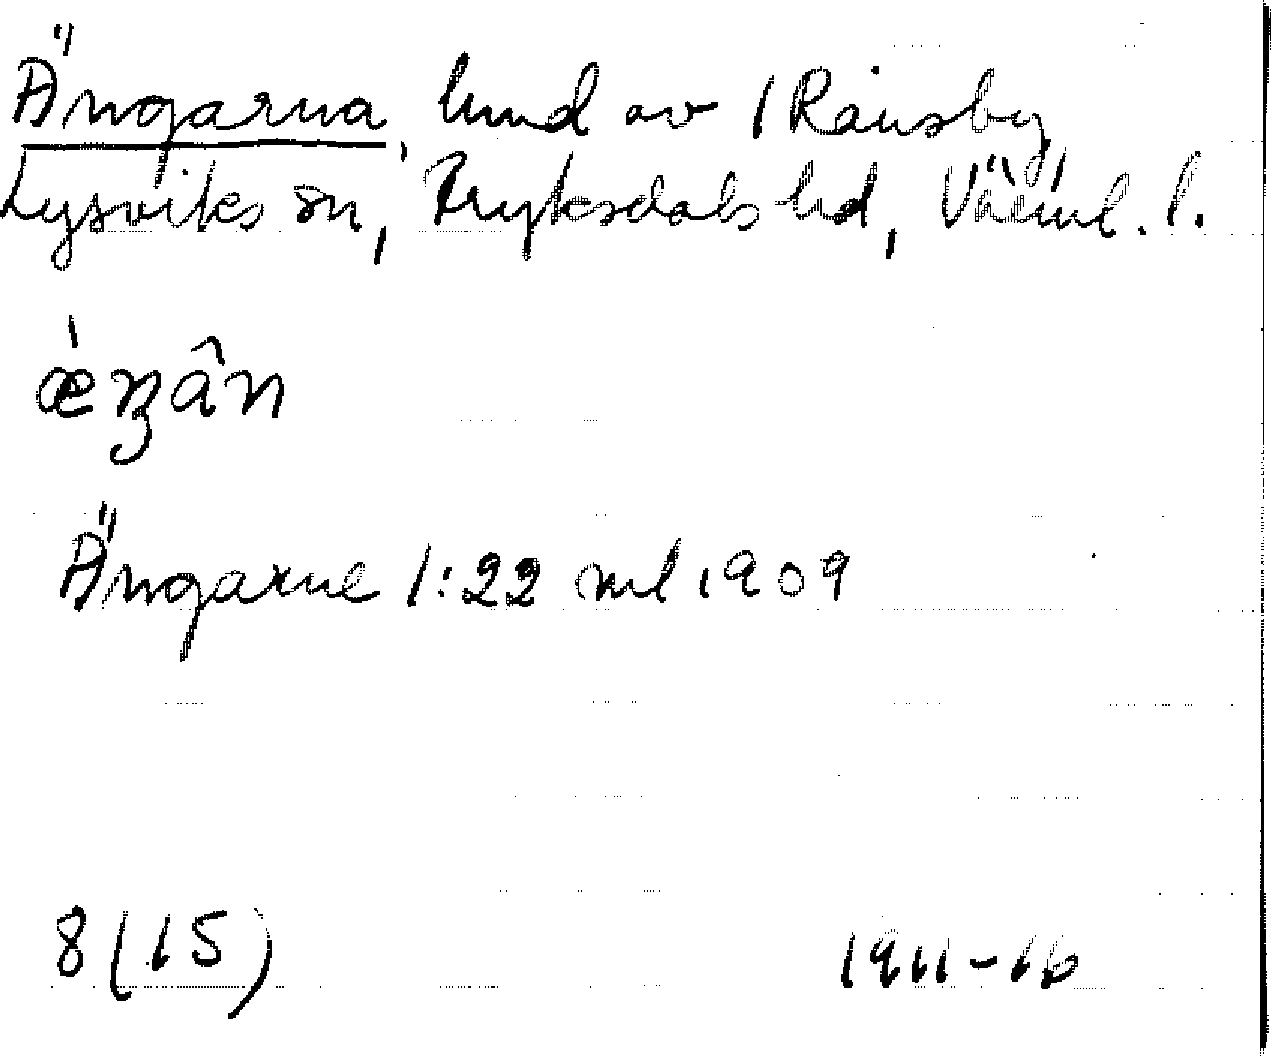 Ängarna, hmd av 1 Rånsby
Lysviks sn, Fryksdals hd, Värml. l.
Ängarne 1:22 ml 1909
8(15) 1911-16